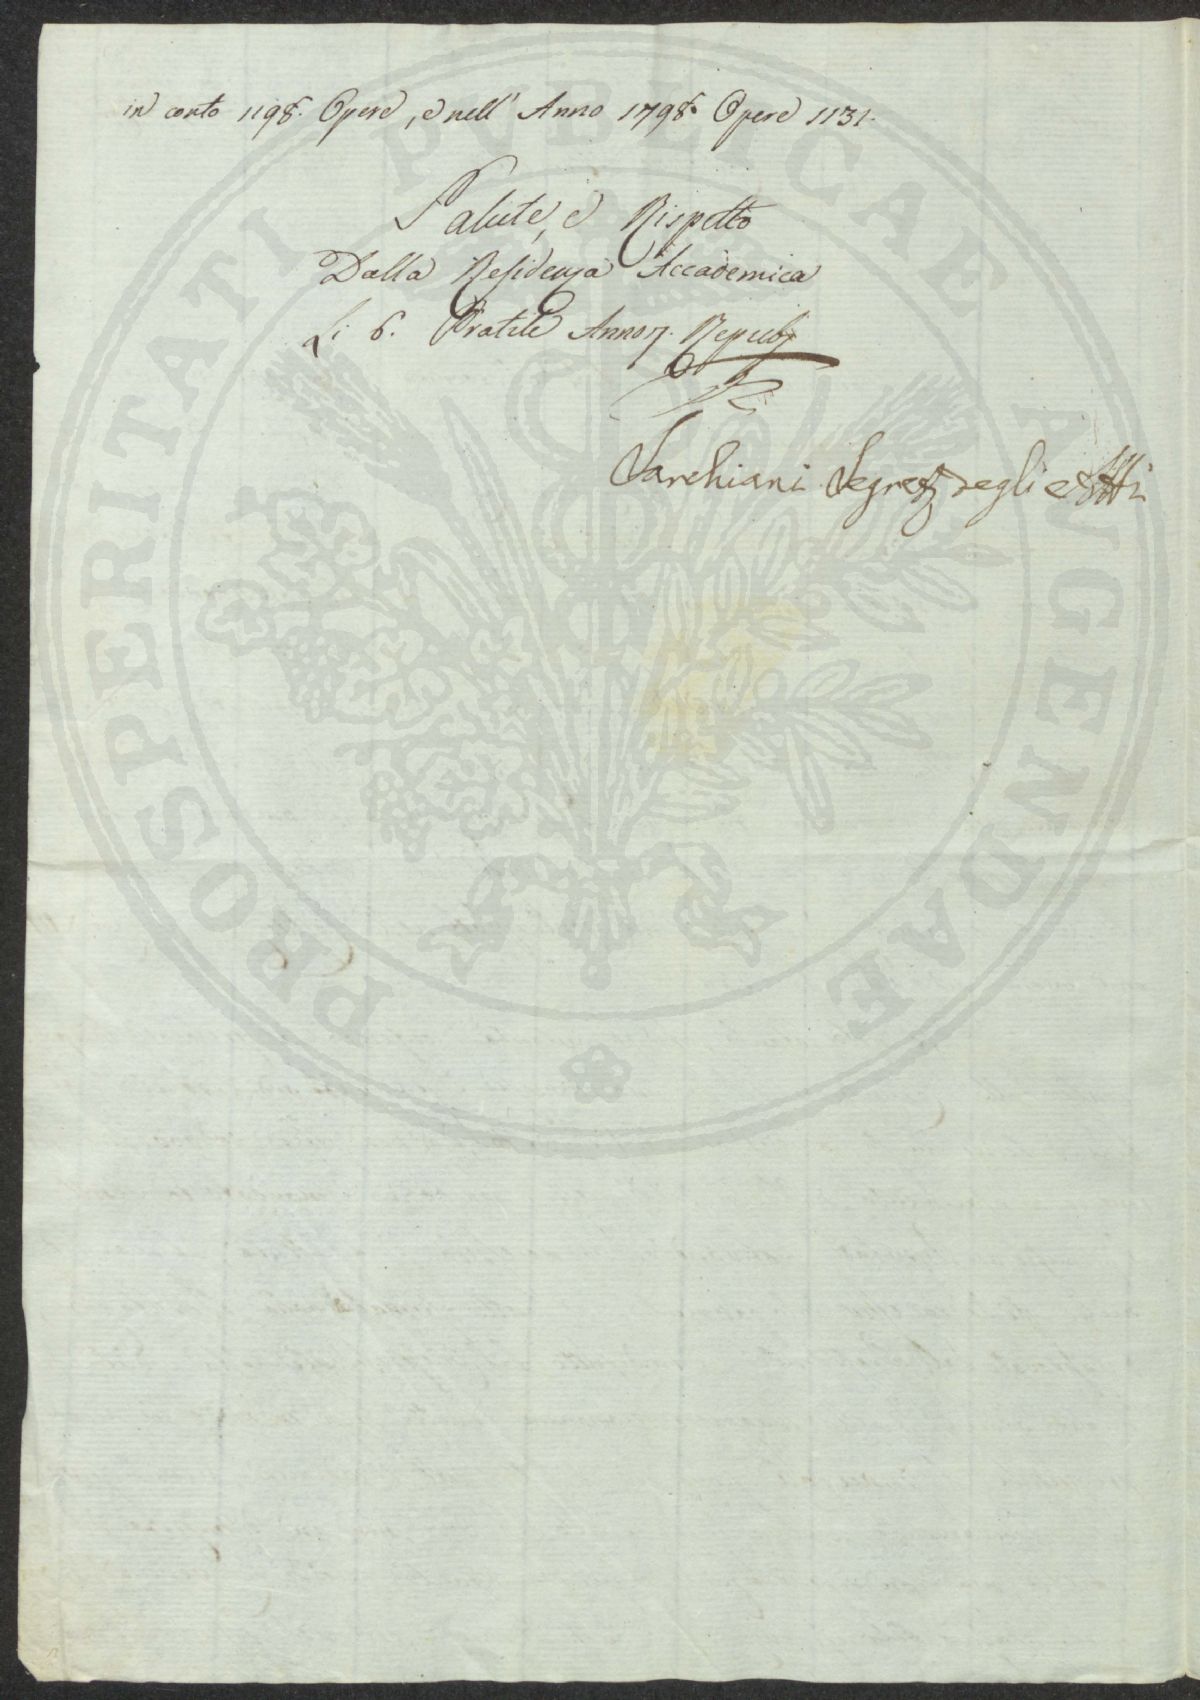 in conto 1198. Opere, e nell' Anno 1798. Opere 1131.
Salute, e Rispetto
Dalla Residenza Accademica
Li 6. Pratile Anno 7. Repub
Sarchiani Segret degli Atti
PROSPERITATI PUBLICAE AUGENDAE